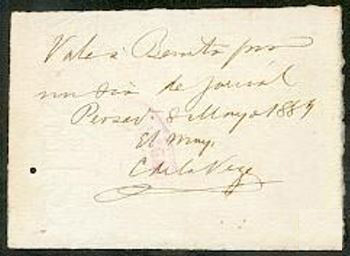 Vale á Benito por
un dia de jornal
8 Mayo 1889
El May.
C de la Vega